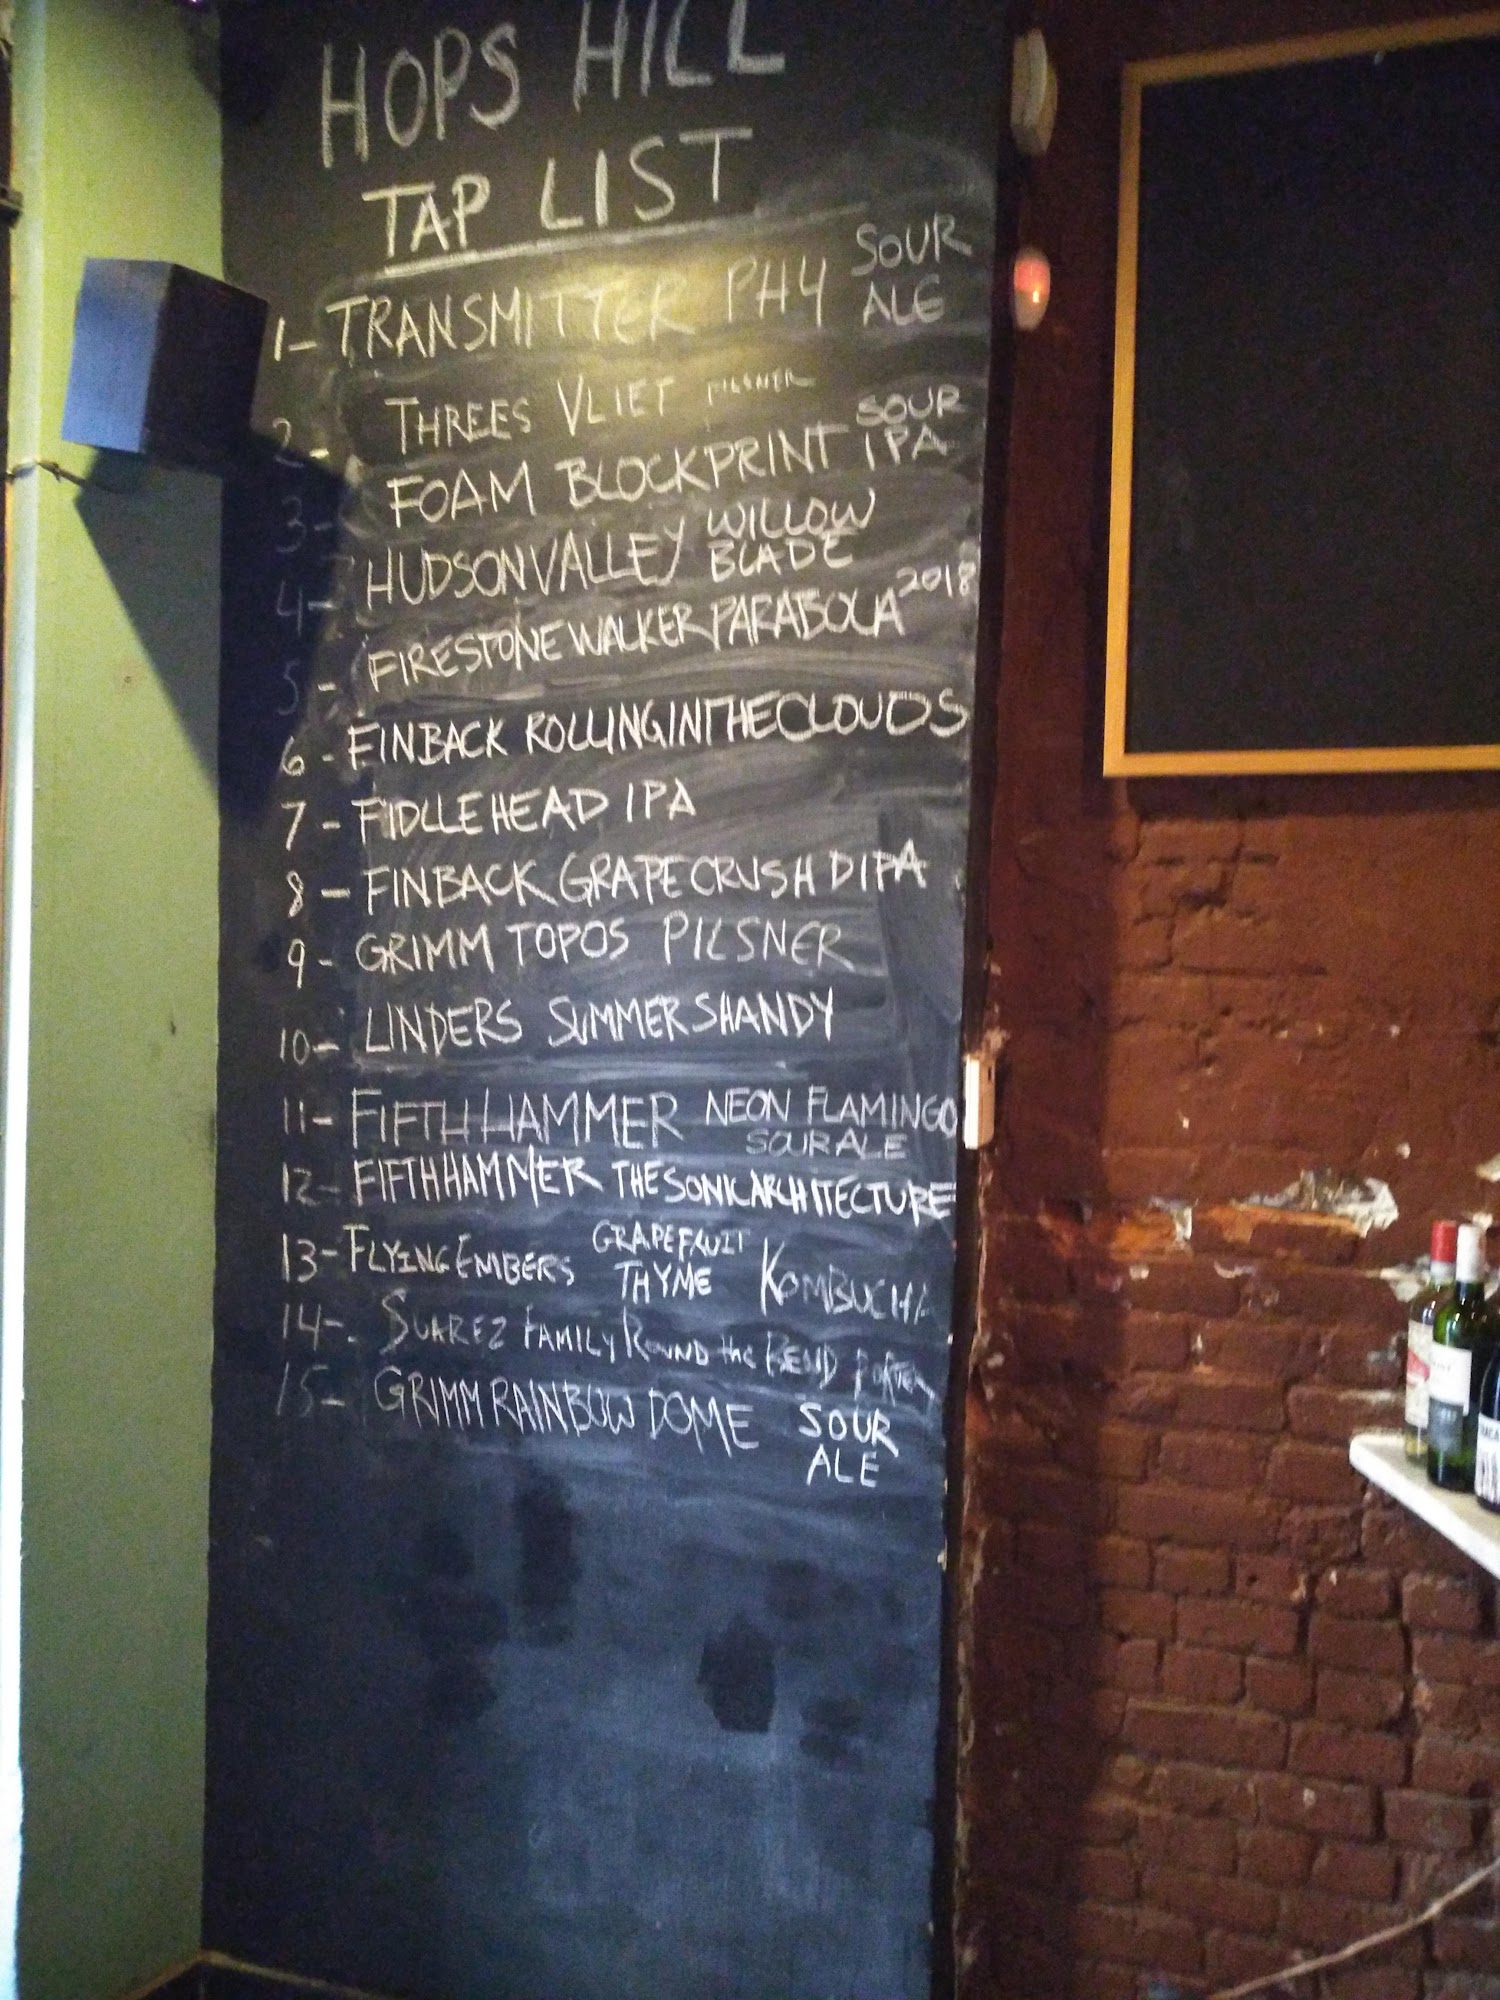 HOPS HILL
TAP LIST
1- TRANSMITTER PH4 SOUR ALE
2- THREES VLIET PILSNER
3- FOAM BLOCKPRINT SOUR IPA
4- HUDSON VALLEY WILLOW BLADE
5- FIRESTONE WALKER PARABOLA 2018
6- FINBACK ROLLING IN THE CLOUDS
7- FIDLLEHEAD IPA
8- FINBACK GRAPE CRUSH DIPA
9- GRIMM TOPOS PILSNER
10- LINDERS SUMMER SHANDY
11- FIFTH HAMMER NEON FLAMINGO
SOUR ALE
12- FIFTH HAMMER THE SONIC ARCHITECTURE
13- FLYING EMBERS GRAPEFRUIT THYME KOMBUCHA
14- SUAREZ FAMILY ROUND the BEND PORTER
15- GRIMM RAINBOW DOME SOUR ALE